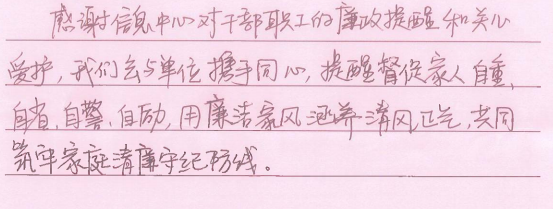 感谢信息中心对干部职工的廉政提醒和关心
爱护，我们会与单位携手同心，提醒督促家人自重、
自省、自警、自励，用廉洁家风涵养清风正气，共同
筑牢家庭清廉守纪防线。